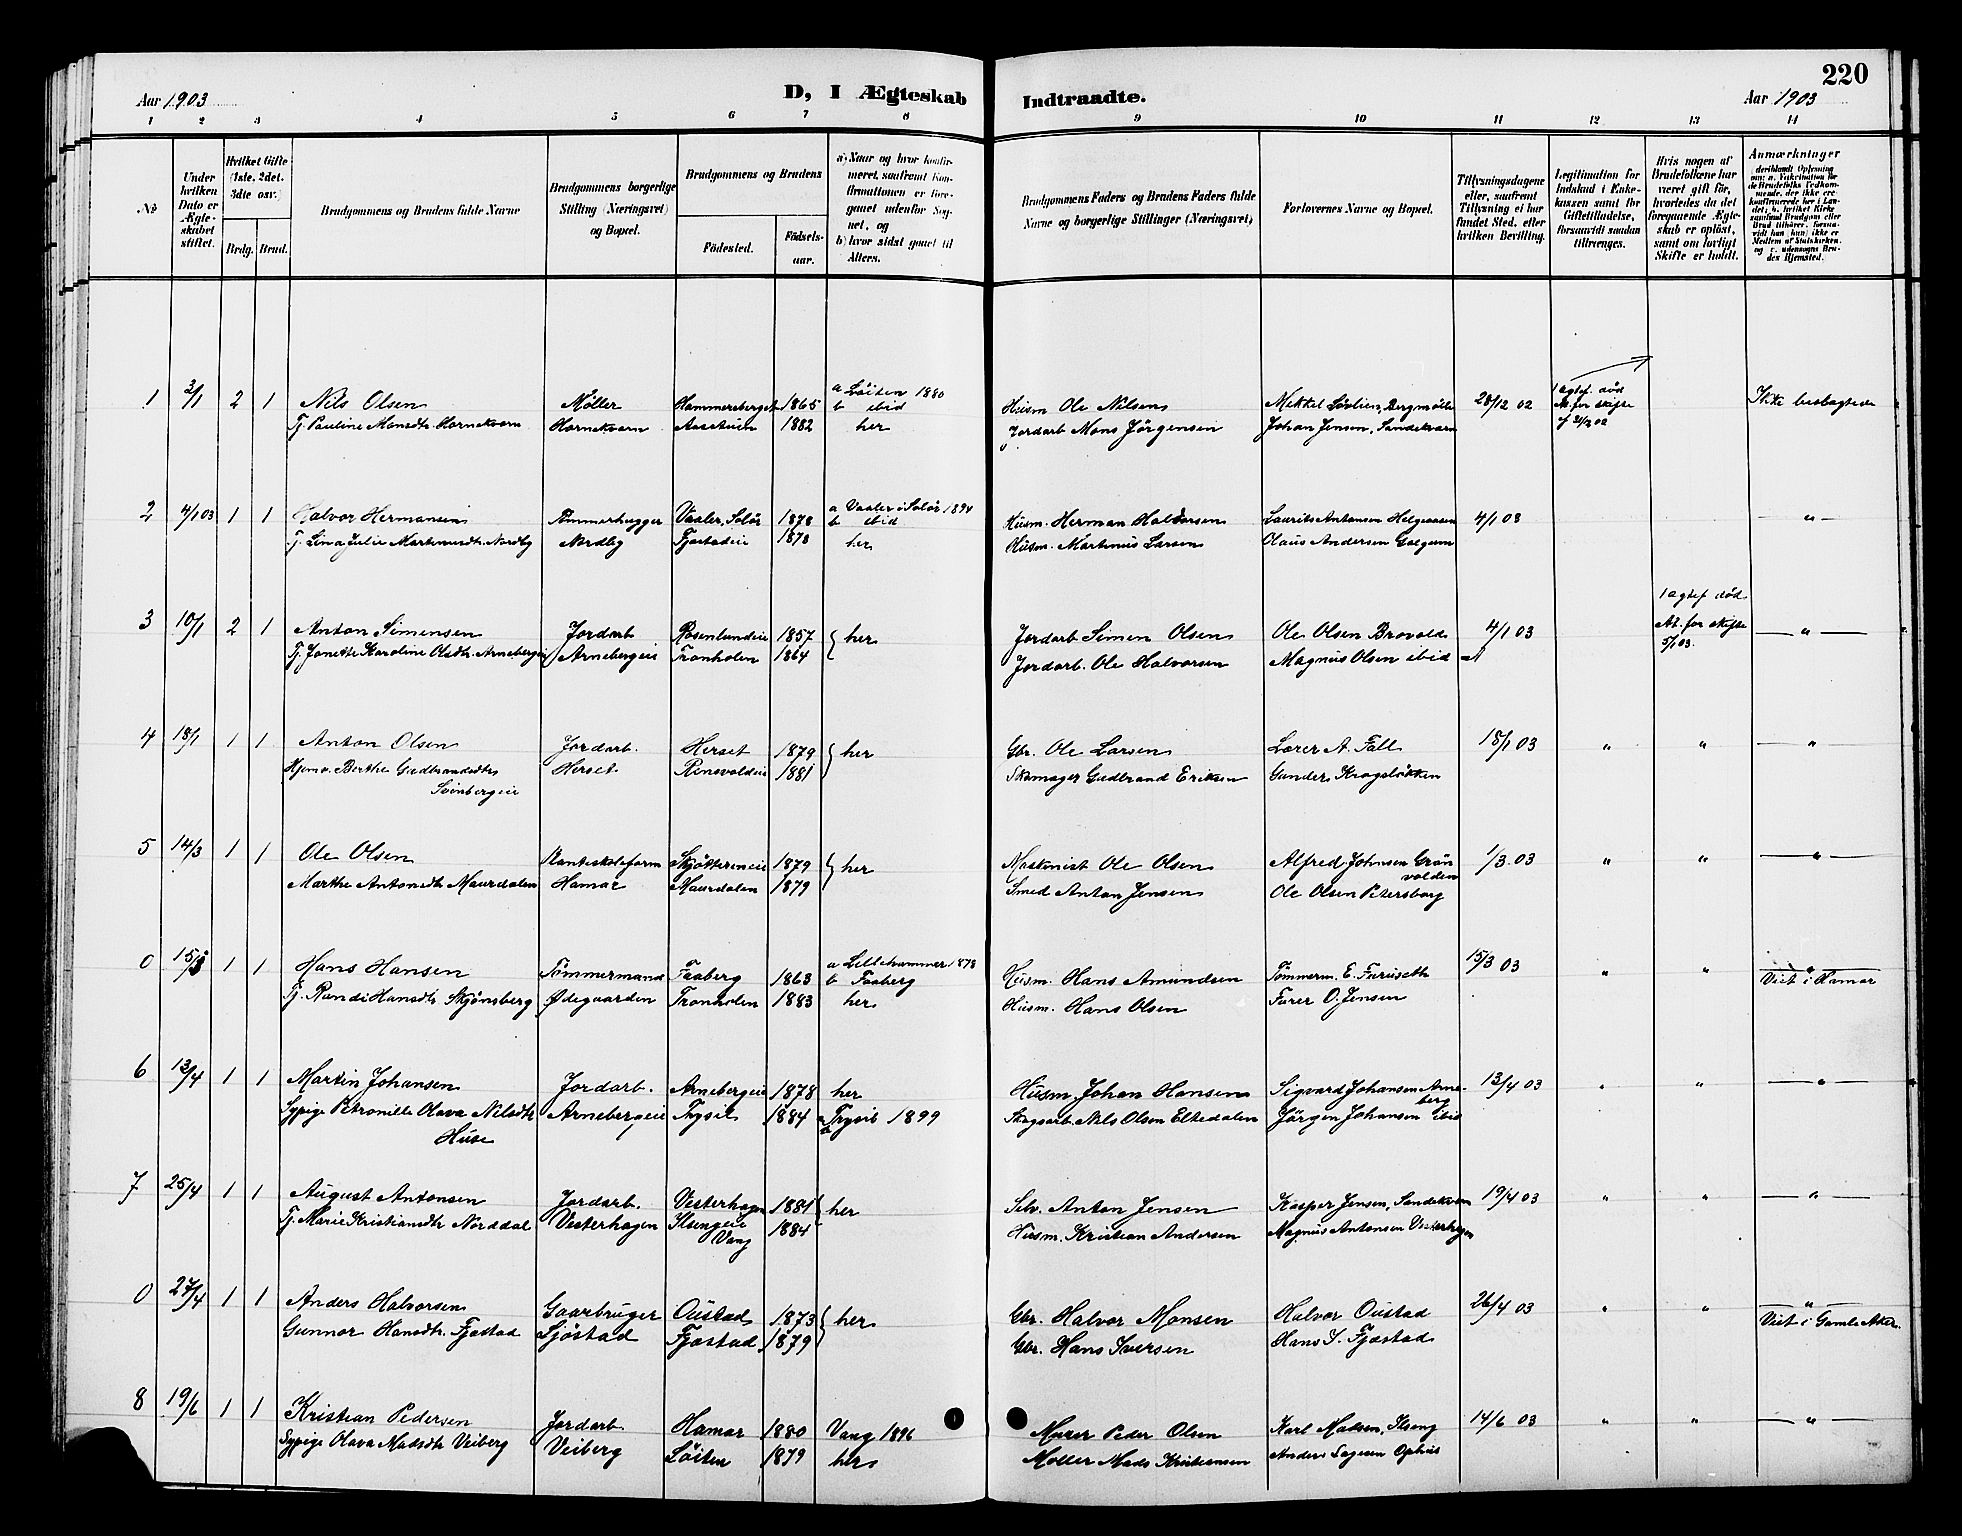 220
Aar 1903
D, I Ægteskab Indtraadte.
Aar 1903
1 2 3 4 5 6 7 8 9 10 11 12 13 14
No
Under hvilken Dato er Ægteskabet stiftet.
Hvilket Gifte (1ste, 2det, 3die osv.)
Brdg. Brud.
Brudgommens og Brudens fulde Navne
Brudgommens borgerlige Stilling (Næringsvei) og Bopæl.
Brudgommens og Brudens
Fødested.
Fødselsaar.
a) Naar og hvor konfirmeret, saafremt Konfirmationen er foregaaet udenfor Sognet, og
b) hvor sidst gaaet til Alters.
Brudgommens Faders og Brudens Faders fulde Navne og borgerlige Stillinger (Næringsvei)
Forlovernes Navne og Bopæl.
Tillysningsdagene eller, saafremt Tillysning ei har fundet Sted, efter hvilken Bevilling.
Legitimation for Indskud i Enkekassen samt for Giftetilladelse, forsaavidt saadan tiltrænges.
Hvis nogen af Brudefolkene har været gift før, hvorledes da det foregaaende Ægteskab er opløst, samt om lovligt Skifte er holdt.
Anmærkninger
1 3/1 2 1 Nils Olsen Møller Hammersberget 1865 a Løiten 1880 Husm Ole Nilsen Mekkel Løvlien, Bergmølle 28/12 02 1 ægtef. død Ikke beslægtede
Tj. Pauline Monsdtr Hornekvern Hornekvern Aasetuien 1882 b ibid her Jordarb Mons Jørgensen Johan Jensen, Sandekvern At. for skifte
2 4/1 03 1 1 Halvor Hermansen Tømmerhugger Vaaler, Solør 1878 a Vaaler i Solør 1894 b ibid Husm. Herman Halvorsen Laurits Antonsen Helgeaasen 4/1 03 "
Tj. Lina Julie Martinusdtr. Nordby Nordby Fjæstadeie 1878 her Husm. Martinus Larsen Olaus Andersen Galgum
3 10/1 2 1 Anton Simensen Jordarb Rosenlundeie 1857 her Jordarb Simen Olsen Ole Olsen Brovold 4/1 03 1 ægtef død At. for skifte 5/1 03. "
Tj. Jonette Karoline Olsdtr. Arnebergeie Arnebergeie Tronholen 1864 Jordarb. Ole Halvorsen Magnus Olsen ibid
4 18/1 1 1 Anton Olsen Jordarb. Herset 1879 her Gbr. Ole Larsen Lærer A. Fall 18/1 03 " " "
Hjemv. Berthe Gudbrandsdtr Herset Rinsvoldeie 1881 Skomager Gudbrand Eriksen Gunder Kragsløkken
Svinbergeie
5 14/3 1 1 Ole Olsen 1879 her Maskinist Ole Olsen Alfred Johnsen Grønvolden 1/3 03 " " "
Marthe Antonsdtr Maurdalen Hamar Maurdalen 1879 Smed Anton Jensen Ole Olsen Petersborg
0 15/3 1 1 Hans Hansen Tømmermand Faaberg 1863 a Lillehammer 1878 b Faaberg Husm. Hans Amundsen Tømmerm. E. Furuseth 15/3 03 " " "
Viet i Hamar
Tj. Randi Hansdtr Skjønsberg Ødegaarden Tronholen 1883 her Husm. Hans Olsen Furer O. Jensen
6 13/4 1 1 Martin Johansen Jordarb. Arnebergeie 1878 her Husm. Johan Hansen Sigvard Johansen Arneberg 13/4 03 " " "
Sypige Petronille Olava Nilsdtr Arnebergeie Trysil 1884 Trysil 1899 Skogsarb. Nils Olsen Eltedalen Jørgen Johansen ibid
Huse
7 25/4 1 1 August Antonsen Jordarb. Vesterhagen 1881 her Selv. Anton Jensen Kasper Jensen, Sandekvern 19/4 03 " " "
Tj. Marie Kristiansdtr Norddal Vesterhagen Ilsengeie Vang 1884 Husm. Kristian Andersen Magnus Antonsen Vesterhagen
0 27/4 1 1 Anders Halvorsen Gaarbruger Oustad 1873 her Gbr. Halvor Monsen Halvor Oustad 26/4 03 " " "
Viet i Gamle Aker.
Gunnor Hansdtr. Fjæstad Sjøstad Fjæstad 1879 Gbr. Hans Iversen Hans I. Fjæstad
8 19/6 1 1 Kristian Pedersen Jordarb. Hamar 1880 Vang 1896 Murer Peder Olsen Karl Madsen, Ilseng 14/6 03 " " "
Sypige Olava Madsdtr Veiberg Veiberg Løiten 1879 her Møller Mads Kristiansen Anders Lagesen Ophus